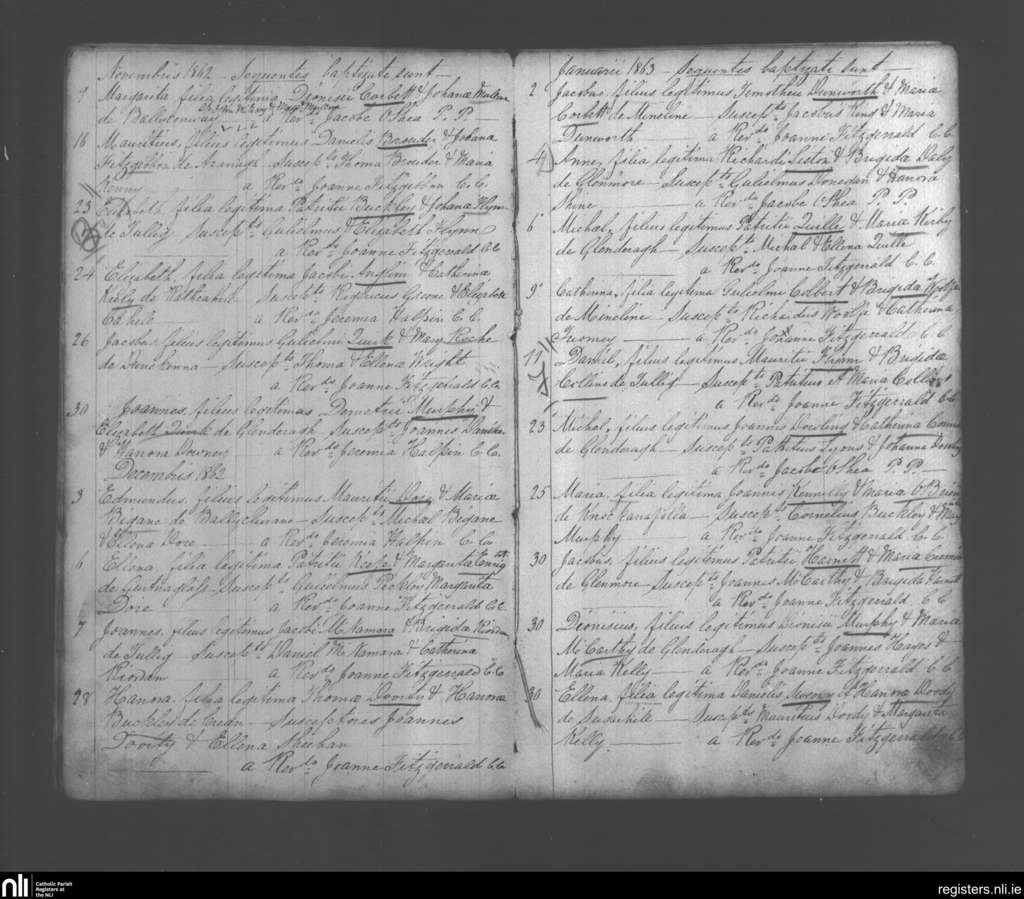 Novembris 1862 - Sequentes baptizati sunt -
9 Margarita filia legitima Dionisii Corbett & Johana
de a Revdo Jacobo O'Shea P. P. -
16 Mauritius, filius legitimus Danielis Brouder & Johana
Fitzgibbon de Aranagh - Suscepts Thoma Brouder & Maria
a Revdo Joanne Fitzgibbon C.C.
23 Elizabeth, filia legitima Patritii Buckley & Johana Flynn
de Tullig Suscepts Gulielmus & Elizabeth Flynn
a Revdo Joanne Fitzgerald C.C.
24 Elizabeth, filia legitima Jacobi Anglim & Catherina
Kiely de Rathcahill Suscepts Greene & Elizabeth
Cahill - a Revdo Jeremia Halpin C.C.
26 Jacobus, filius legitimus Gulielmi Quirk & Mary Roche
de Dunekenna - Suscepts Thoma & Ellena Wright
a Revdo Joanne Fitzgerald C.C.
30 Joannes, filius legitimus Demetrii Murphy &
Elizabeth de Glenderagh - Suscepts Joannes
& Hanora Downey a Revdo Jeremia Halpin C.C.
Decembris 1862
3 Edmundus, filius legitimus Mauritii Dore & Maria
Begane de - Suscepts Michal Begane
& Ellena Dore - a Revdo Jeremia Halpin C.C.
6 Ellena, filia legitima Patritii & Margarita
de Suscepts Gulielmus & Margarita
Dore a Revdo Joanne Fitzgerald C.C.
7 Joannes, filius legitimus Jacobi McNamara & Brigida Riordan
de Tullig Suscepts Daniel McNamara & Catherina
Riordan a Revdo Joanne Fitzgerald C.C.
28 Hanora, filia legitima Thomae Doody & Hanora
Buckley de - Susceptores Joannes
Doody & Ellena Sheehan
a Revdo Joanne Fitzgerald C.C.
Januarii 1863 - Sequentes baptizati sunt -
2 Jacobus, filius legitimus Timothei Dunworth & Maria
Corbett de Meneline - Suscepts Jacobus King & Maria
Dunworth a Revdo Joanne Fitzgerald C.C.
4 Anne, filia legitima Richardi Liston & Brigida Daly
de Glenmore - Suscepts Gulielmus Donedan & Hanora
Shine - a Revdo Jacobo O'Shea P. P.
6 Michal, filius legitimus Patritii Quille & Maria Kirby
de Glenderagh - Suscepts Michal & Ellena Quille
a Revdo Joanne Fitzgerald C.C.
9 Catherina, filia legitima Gulielmi Colbert & Brigida Wolfe
de Meneline - Suscepts Richardus Woolfe & Catherina
Twomey - a Revdo Joanne Fitzgerald C.C.
11 Daniel, filius legitimus Mauritii & Brigida
Collins de Tullig - Suscepts Patritius et Maria Collins
a Revdo Joanne Fitzgerald C.C.
23 Michal, filius legitimus Joannis Dowling & Catherina
de Glenderagh - Suscepts Patritius Lyons & Johanna
a Revdo Jacobo O'Shea P. P. -
25 Maria, filia legitima Joannis Kennelly & Maria O'Brien
de - Suscepts Cornelius Buckley & Mary
Murphy - a Revdo Joanne Fitzgerald C.C.
30 Jacobus, filius legitimus Patritii Harnett & Maria
de Glenmore - Suscepts Joannes McCarthy & Brigida Harnett
a Revdo Joanne Fitzgerald C.C.
30 Dionisius, filius legitimus Dionisii Murphy & Maria
McCarthy de Glenderagh - Suscepts Joannes &
Maria Kelly - a Revdo Joanne Fitzgerald C.C.
30 Ellena, filia legitima Danielis & Hanora Doody
de - Suscepts Mauritius Doody & Margarita
Kelly - a Revdo Joanne Fitzgerald C.C.
nli Catholic Parish
Registers at
the NLI
registers.nli.ie